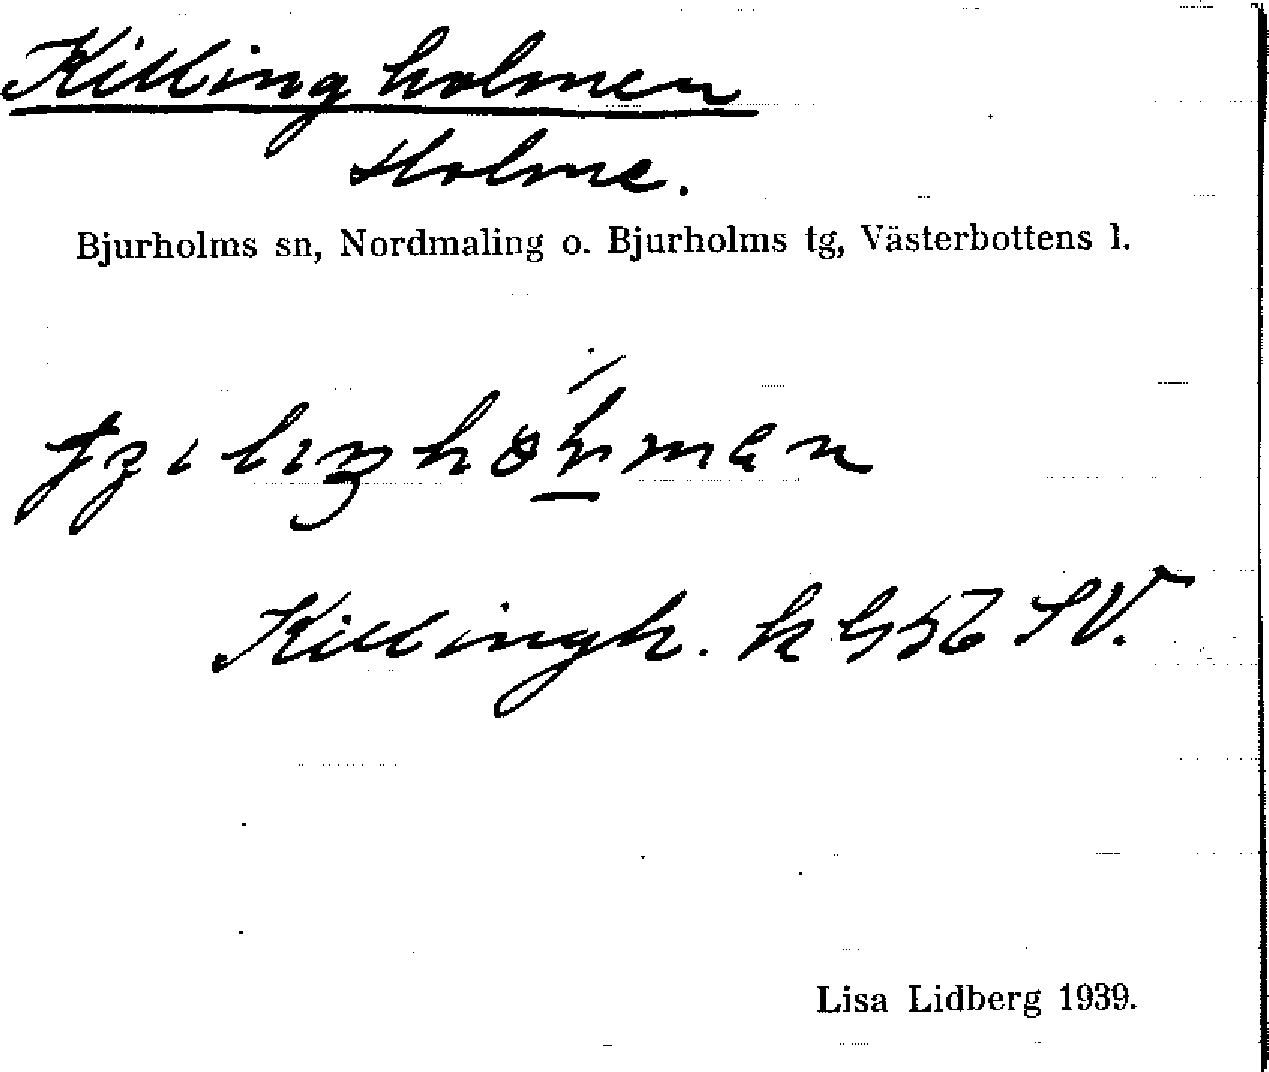 Killingholmen
Holme.
Bjurholms sn, Nordmaling o. Bjurholms tg, Västerbottens l.
Killingh. k SV.
Lisa Lidberg 1939.